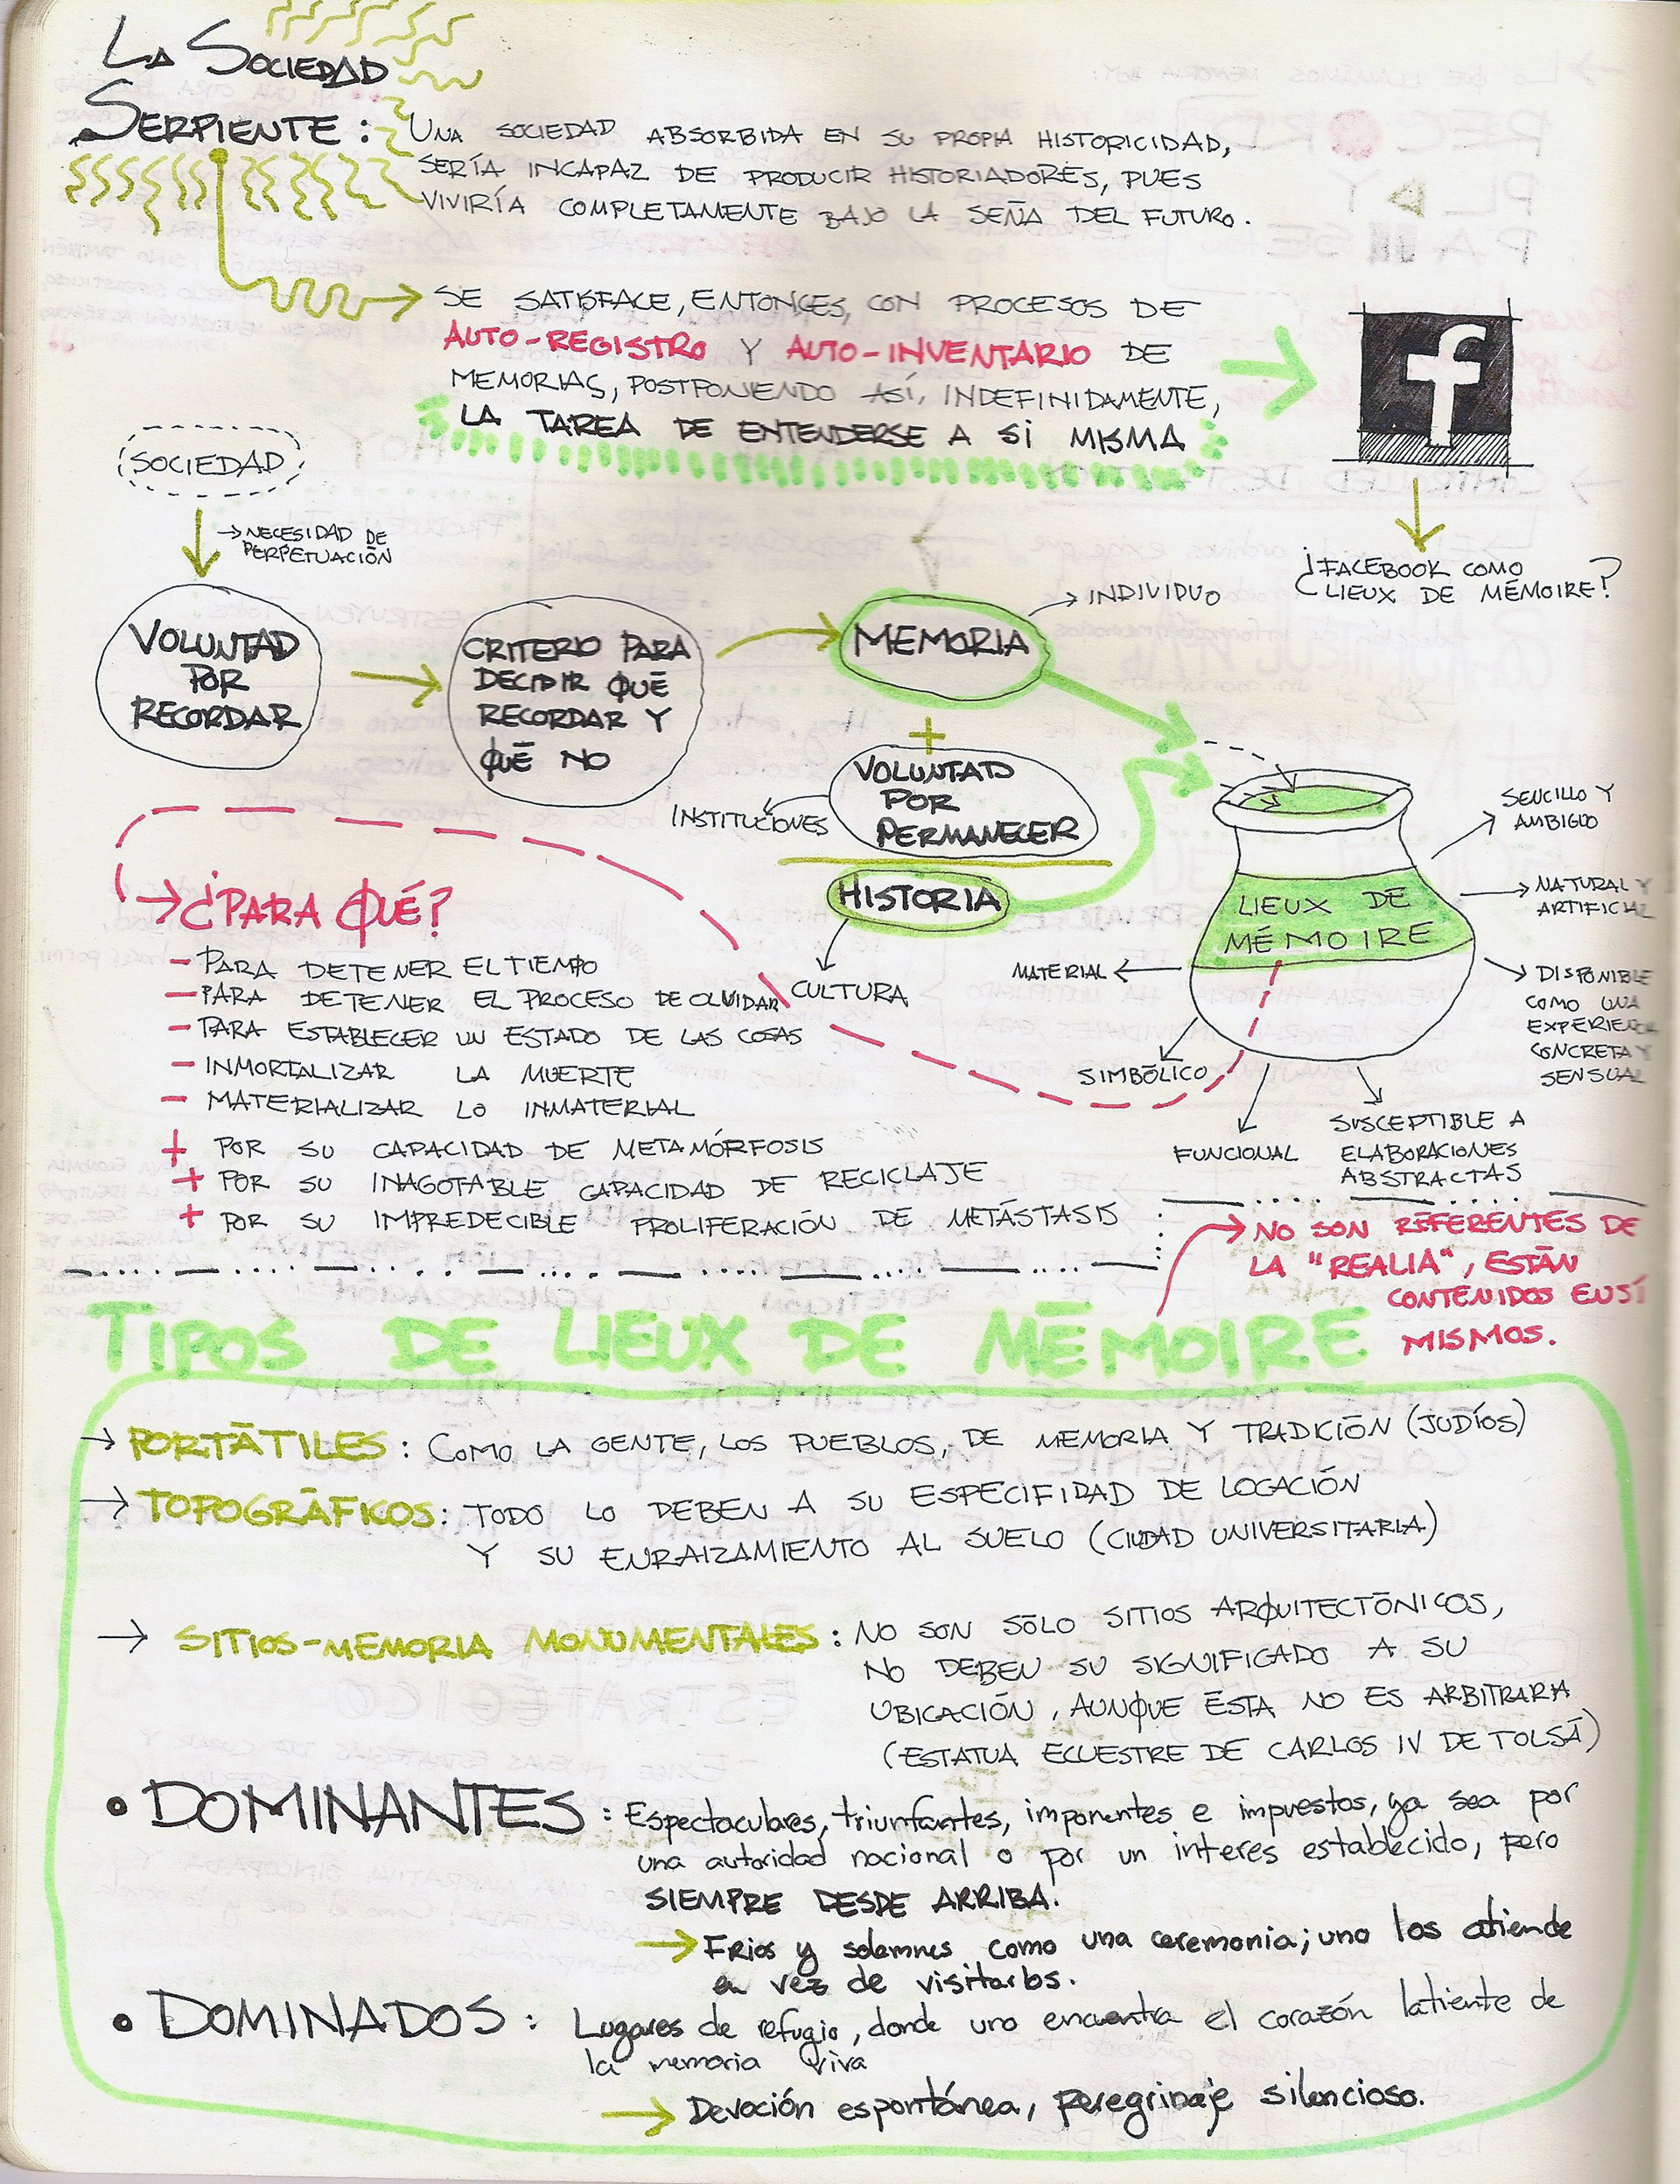 LA SOCIEDAD
SERPIENTE:
UNA SOCIEDAD ABSORBIDA EN SU PROPIA HISTORICIDAD,
SERÍA INCAPAZ DE PRODUCIR HISTORIADORES, PUES
VIVIRÍA COMPLETAMENTE BAJO LA SEÑA DEL FUTURO.
SE SATISFACE, ENTONCES, CON PROCESOS DE
AUTO-REGISTRO Y AUTO-INVENTARIO DE
MEMORIAS, POSTPONIENDO ASÍ, INDEFINIDAMENTE,
LA TAREA DE ENTENDERSE A SI MISMA
f
¿FACEBOOK COMO
LIEUX DE MÉMOIRE?
SOCIEDAD
→ NECESIDAD DE
PERPETUACIÓN
VOLUNTAD
POR
RECORDAR
CRITERIO PARA
DECIDIR QUÉ
RECORDAR Y
QUÉ NO
MEMORIA
INDIVIDUO
+
VOLUNTAD
POR
PERMANECER
INSTITUCIONES
HISTORIA
CULTURA
LIEUX DE
MÉMOIRE
SENCILLO Y
AMBIGUO
NATURAL Y
ARTIFICIAL
DISPONIBLE
COMO UNA
EXPERIENCIA
CONCRETA Y
SENSUAL
MATERIAL
SIMBÓLICO
FUNCIONAL
SUSCEPTIBLE A
ELABORACIONES
ABSTRACTAS
¿PARA QUÉ?
- PARA DETENER EL TIEMPO
- PARA DETENER EL PROCESO DE OLVIDAR
- PARA ESTABLECER UN ESTADO DE LAS COSAS
- INMORTALIZAR LA MUERTE
- MATERIALIZAR LO INMATERIAL
+ POR SU CAPACIDAD DE METAMÓRFOSIS
+ POR SU INAGOTABLE CAPACIDAD DE RECICLAJE
+ POR SU IMPREDECIBLE PROLIFERACIÓN DE METÁSTASIS
NO SON REFERENTES DE
LA "REALIA", ESTÁN
CONTENIDOS EN SÍ
MISMOS.
TIPOS DE LIEUX DE MÉMOIRE
→ PORTÁTILES: COMO LA GENTE, LOS PUEBLOS, DE MEMORIA Y TRADICIÓN (JUDÍOS)
→ TOPOGRÁFICOS: TODO LO DEBEN A SU ESPECIFIDAD DE LOCACIÓN
Y SU ENRAIZAMIENTO AL SUELO (CIUDAD UNIVERSITARIA)
→ SITIOS-MEMORIA MONUMENTALES: NO SON SÓLO SITIOS ARQUITECTÓNICOS,
NO DEBEN SU SIGNIFICADO A SU
UBICACIÓN, AUNQUE ÉSTA NO ES ARBITRARIA
(ESTATUA ECUESTRE DE CARLOS IV DE TOLSÁ)
• DOMINANTES: Espectaculares, triunfantes, imponentes e impuestos, ya sea por
una autoridad nacional o por un interes establecido, pero
SIEMPRE DESDE ARRIBA.
→ Frios y solemnes como una ceremonia; uno los atiende
en vez de visitarlos.
• DOMINADOS: Lugares de refugio, donde uno encuentra el corazón latiente de
la memoria viva
→ Devoción espontánea, peregrinaje silencioso.